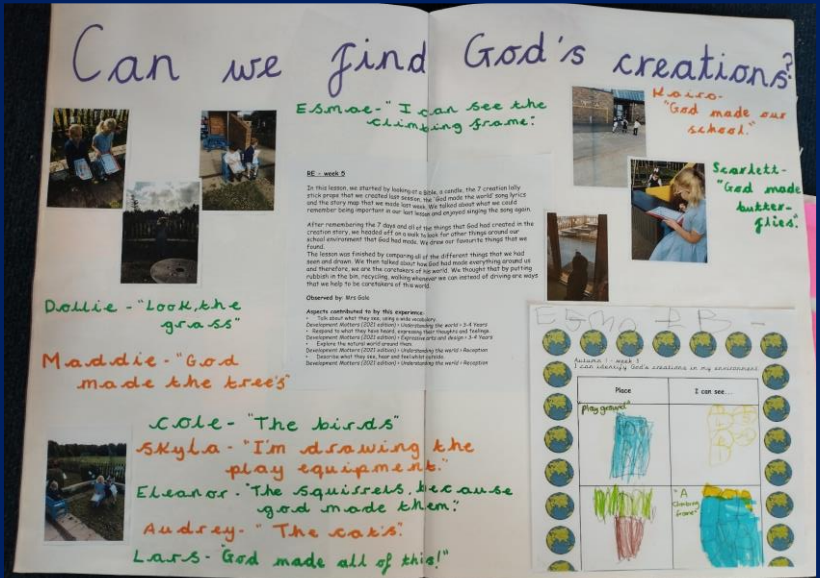 Can we find God's creations?
Esmae - "I can see the
climbing frame."
Kairo-
"God made our
school."
Scarlett-
"God made
butter-
flies."
RE - week 5
In this lesson, we started by looking at a Bible, a candle, the 7 creation lolly
stick props that we created last session, the 'God made the world' song lyrics
and the story map that we made last week. We talked about what we could
remember being important in our last lesson and enjoyed singing the song again.
After remembering the 7 days and all of the things that God had created in the
creation story, we headed off on a walk to look for other things around our
school environment that God had made. We drew our favourite things that we
found.
The lesson was finished by comparing all of the different things that we had
seen and drawn. We then talked about how God had made everything around us
and therefore, we are the caretakers of his world. We thought that by putting
rubbish in the bin, recycling, walking whenever we can instead of driving are ways
that we help to be caretakers of this world.
Observed by: Mrs Gale
Aspects contributed to by this experience:
- Talk about what they see, using a wide vocabulary.
Development Matters (2021 edition) • Understanding the world • 3-4 Years
- Respond to what they have heard, expressing their thoughts and feelings.
Development Matters (2021 edition) • Expressive arts and design • 3-4 Years
- Explore the natural world around them.
Development Matters (2021 edition) • Understanding the world • Reception
- Describe what they see, hear and feel whilst outside.
Development Matters (2021 edition) • Understanding the world • Reception
Dollie - "Look, the
grass"
Maddie - "God
made the tree's"
Cole - "The birds"
Skyla - "I'm drawing the
play equipment."
Eleanor - "The squirrels, because
god made them."
Audrey - "The cat's".
Lars - "God made all of this!"
Autumn 1 - week 5
I can identify God's creations in my environment
Place
I can see...
"Play ground"
"A
climbing
frame"